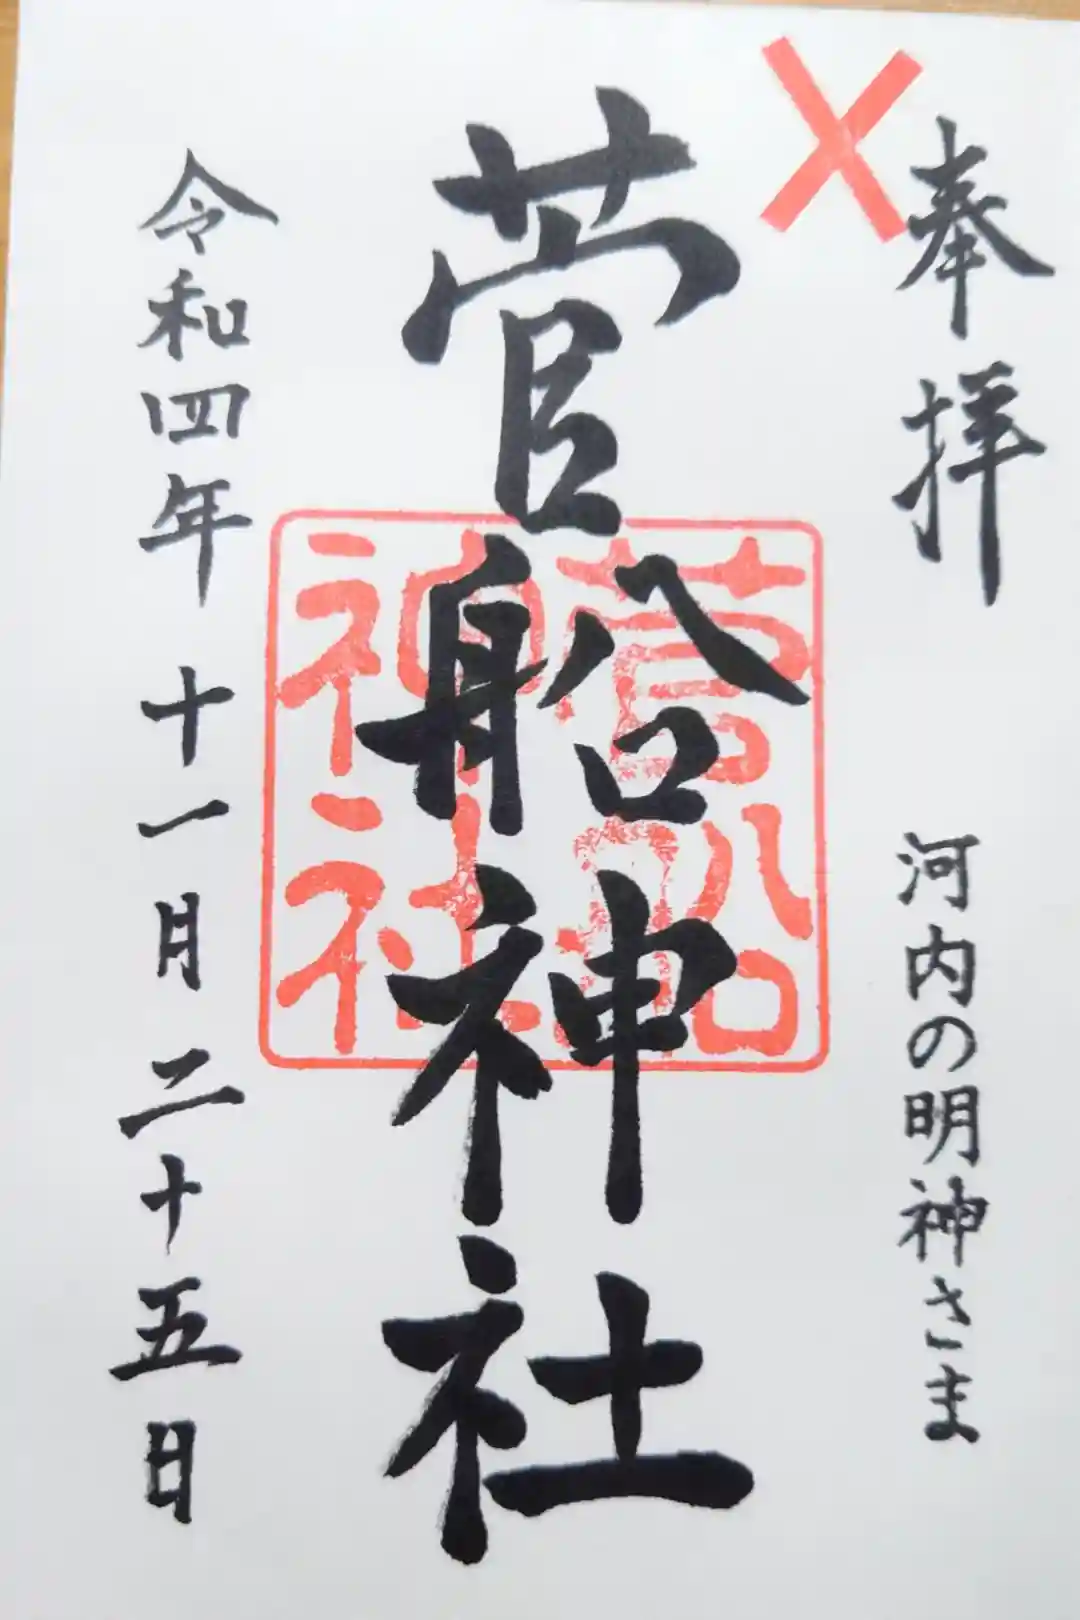 奉拝
河内の明神さま
菅船神社
菅船
神社
令和四年十一月二十五日